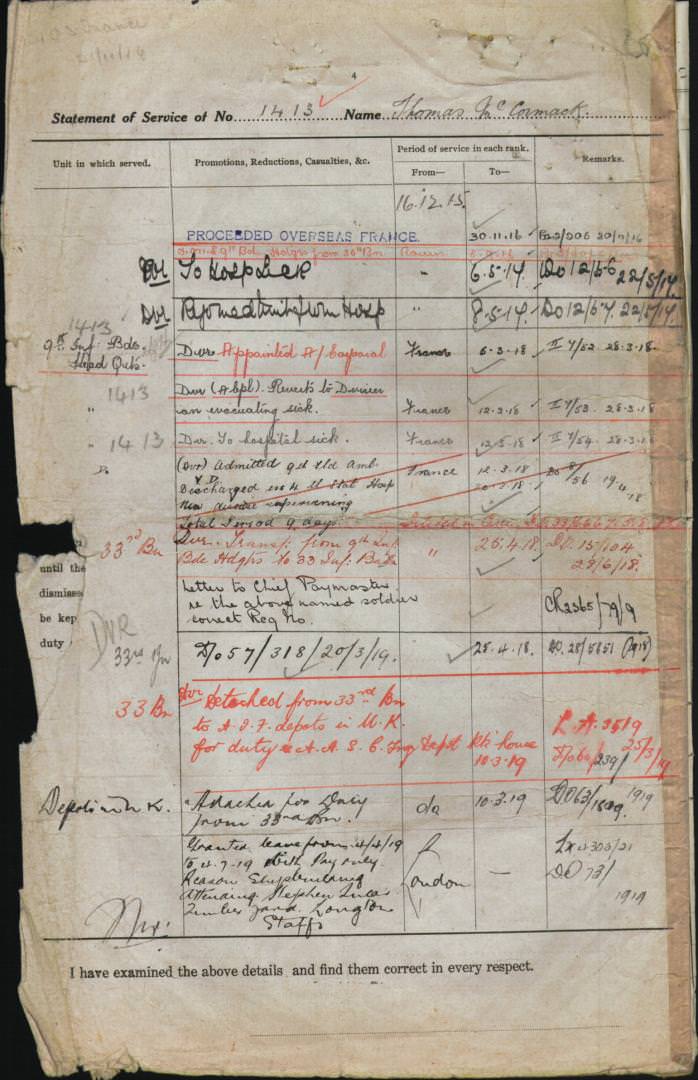 4
Statement of Service of No. 1413 Name Thomas McCormack
Unit in which served.
Promotions, Reductions, Casualties, &c.
Period of service in each rank.
From—
To—
Remarks.
16.12.15.
PROCEEDED OVERSEAS FRANCE. 30.11.16
Dvr To Hosp Sick " 6.5.17. DO 12/5-6 22/5/17.
Dvr Rejoined Unit from Hosp " 8.5.17. DO 12/57. 22/5/17.
1413
9th Inf Bde. Head Qrts. Dvr Appointed A/Corporal France 5-3-18 II 7/52 28-3-18.
1413
" Dvr (A Cpl). Reverts to Driver
on evacuating sick. France 12-3-18 II 7/53. 28-3-18
" 1413 Dvr. To hospital sick. France 12/3-18 II 7/54. 28-3-18
" (Dvr) Admitted 9th Fld Amb. France 12-3-18 56 19-4-18
Discharged ex 4 Stat Hosp
Total Period 9 days.
33rd Bn Dvr. Transf. from 9th Inf " 25.4.18. DO. 15/104
Bde Hdqrs to 33 Inf. Batn 28/6/18.
until the
dismisse
be kep
duty
Letter to Chief Paymaster
re the above named soldier
correct Reg No. CR2365/79/9
DVR
33rd Bn D/o 57/318/20/3/19. 25.4.18. DO. 28/5851
33 Bn Dvr Detached from 33rd Bn
to A.I.F. depots in U.K. L.A. 3519
for duty A.A.S.C. Trng Depot Pk house 239/ 25/3/19
10.3.19
Depots in U.K. Attached for Duty do 10.3.19 DO63/1809. 1919
from 33rd Bn.
Granted leave from 4/4/19
to 4.7.19 with Pay only
Reason Shipbuilding London — DO 73/
Attending Stephen 1919
Timber Yard, Longton
Staffs
I have examined the above details and find them correct in every respect.